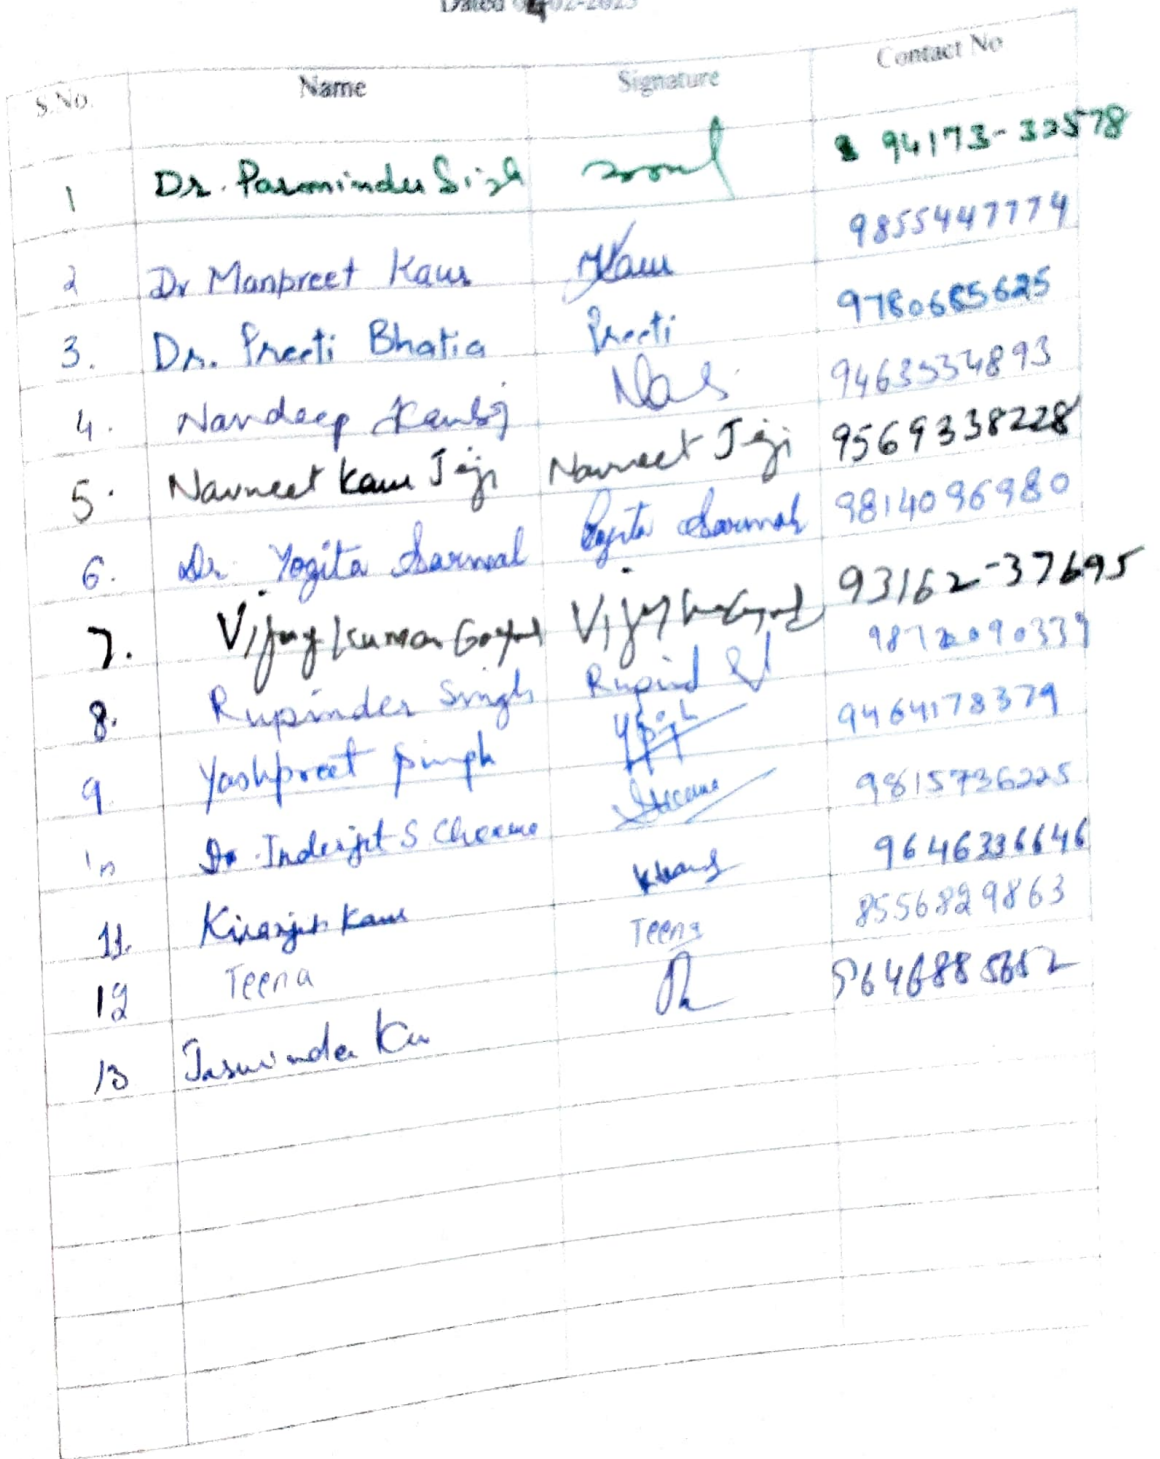 Dated 04-02-2023
S.No. Name Signature Contact No
1 Dr. Parminder Singh 94173-32578
2 Dr Manpreet Kaur Kaur 9855447774
3. Dr. Preeti Bhatia Preeti 9780685625
4. Navdeep Kamboj 9463534893
5. Navneet Kaur Jeji Navneet Jeji 9569338228
6. Dr. Yogita Sarwal Yogita Sarwal 9814096980
7. Vijay Kumar Goyal 93162-37695
8. Rupinder Singh Rupind 9872090339
9. Yashpreet Singh 9464178379
10 Dr. Inderjit S Cheema Cheema 9815736225
11. Kiranjit Kaur 9646336646
12 Teena Teena 8556829863
13 Jaswinder Kau 9646885652